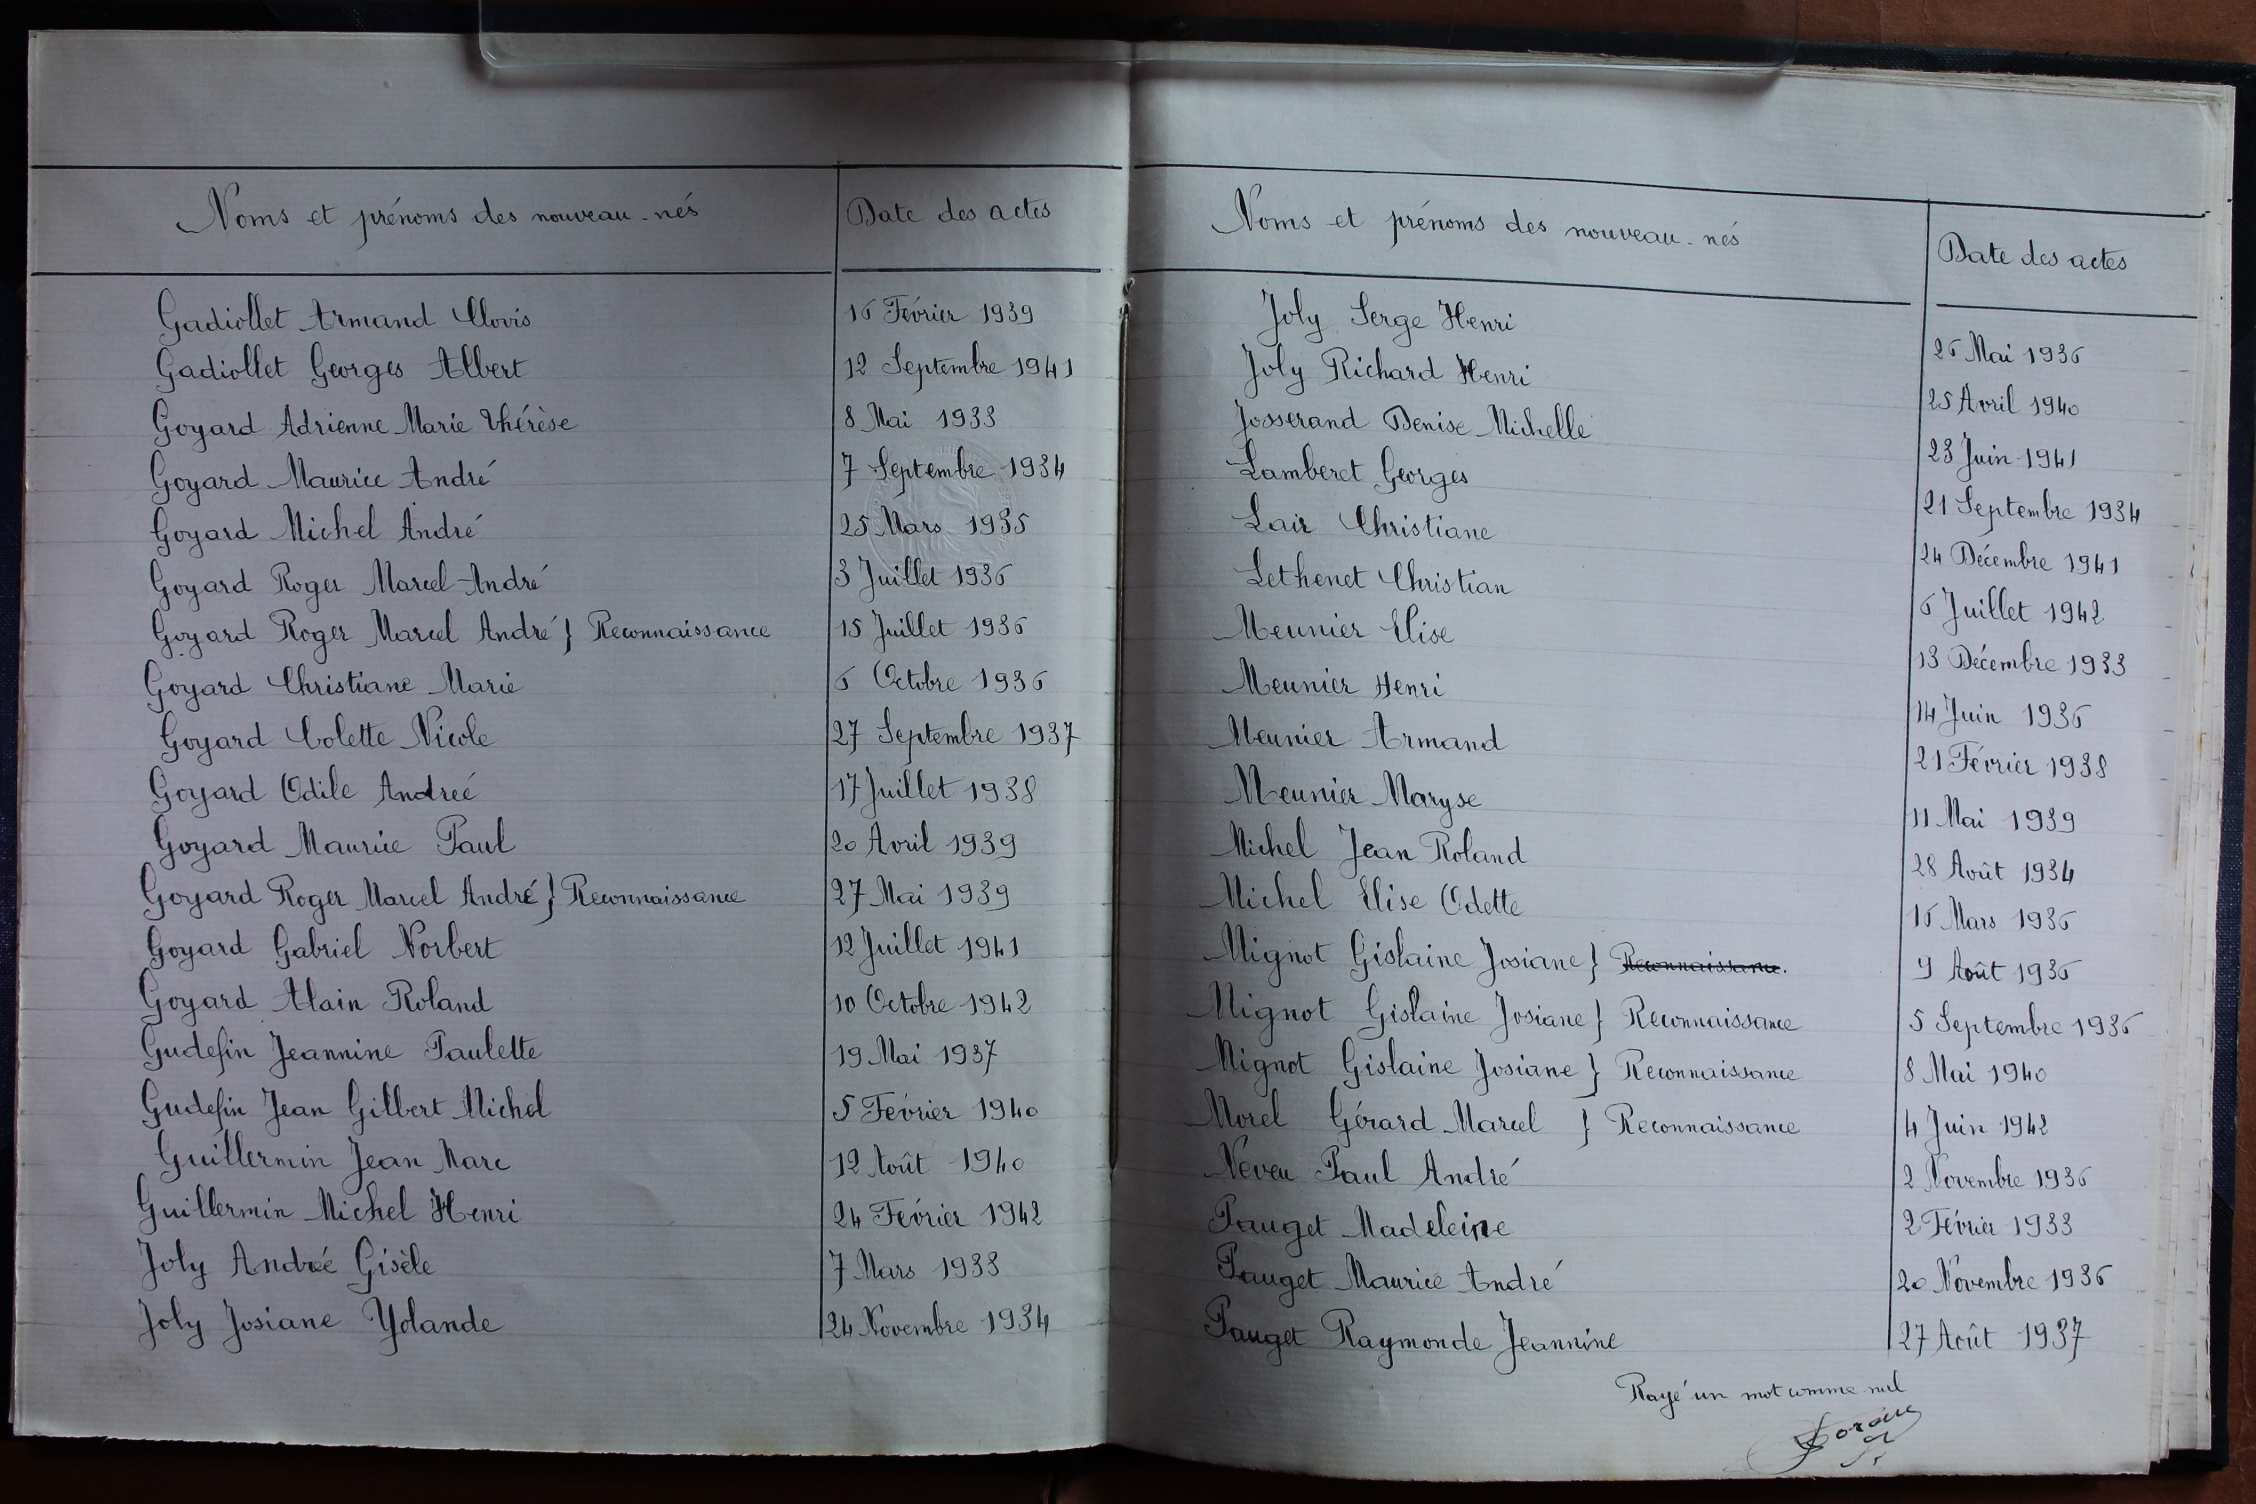 Noms et prénoms des nouveau-nés Date des actes
Gadiollet Armand Clovis 16 Février 1939
Gadiollet Georges Albert 12 Septembre 1941
Goyard Adrienne Marie Thérèse 8 Mai 1933
Goyard Maurice André 7 Septembre 1934
Goyard Michel André 25 Mars 1935
Goyard Roger Marcel André 3 Juillet 1936
Goyard Roger Marcel André } Reconnaissance 15 Juillet 1936
Goyard Christiane Marie 6 Octobre 1936
Goyard Colette Nicole 27 Septembre 1937
Goyard Odile Andreé 17 Juillet 1938
Goyard Maurice Paul 20 Avril 1939
Goyard Roger Marcel André } Reconnaissance 27 Mai 1939
Goyard Gabriel Norbert 12 Juillet 1941
Goyard Alain Roland 10 Octobre 1942
Gudefin Jeannine Paulette 19 Mai 1937
Gudefin Jean Gilbert Michel 5 Février 1940
Guillermin Jean Marc 12 Août 1940
Guillermin Michel Henri 24 Février 1942
Joly Andreé Gisèle 7 Mars 1933
Joly Josiane Yolande 24 Novembre 1934
Noms et prénoms des nouveau-nés Date des actes
Joly Serge Henri 26 Mai 1936
Joly Richard Henri 25 Avril 1940
Josserand Denise Michelle 23 Juin 1941
Lamberet Georges 21 Septembre 1934
Lair Christiane 24 Décembre 1941
Lethenet Christian 6 Juillet 1942
Meunier Elise 13 Décembre 1933
Meunier Henri 14 Juin 1936
Meunier Armand 21 Février 1938
Meunier Maryse 11 Mai 1939
Michel Jean Roland 28 Août 1934
Michel Elise Odette 16 Mars 1936
Mignot Gislaine Josiane } Reconnaissance. 9 Août 1936
Mignot Gislaine Josiane } Reconnaissance 5 Septembre 1936
Mignot Gislaine Josiane } Reconnaissance 8 Mai 1940
Morel Gérard Marcel } Reconnaissance 4 Juin 1942
Neveu Paul André 2 Novembre 1936
Pauget Madeleine 2 Février 1933
Pauget Maurice André 20 Novembre 1936
Pauget Raymonde Jeannine 27 Août 1937
Rayé un mot comme nul